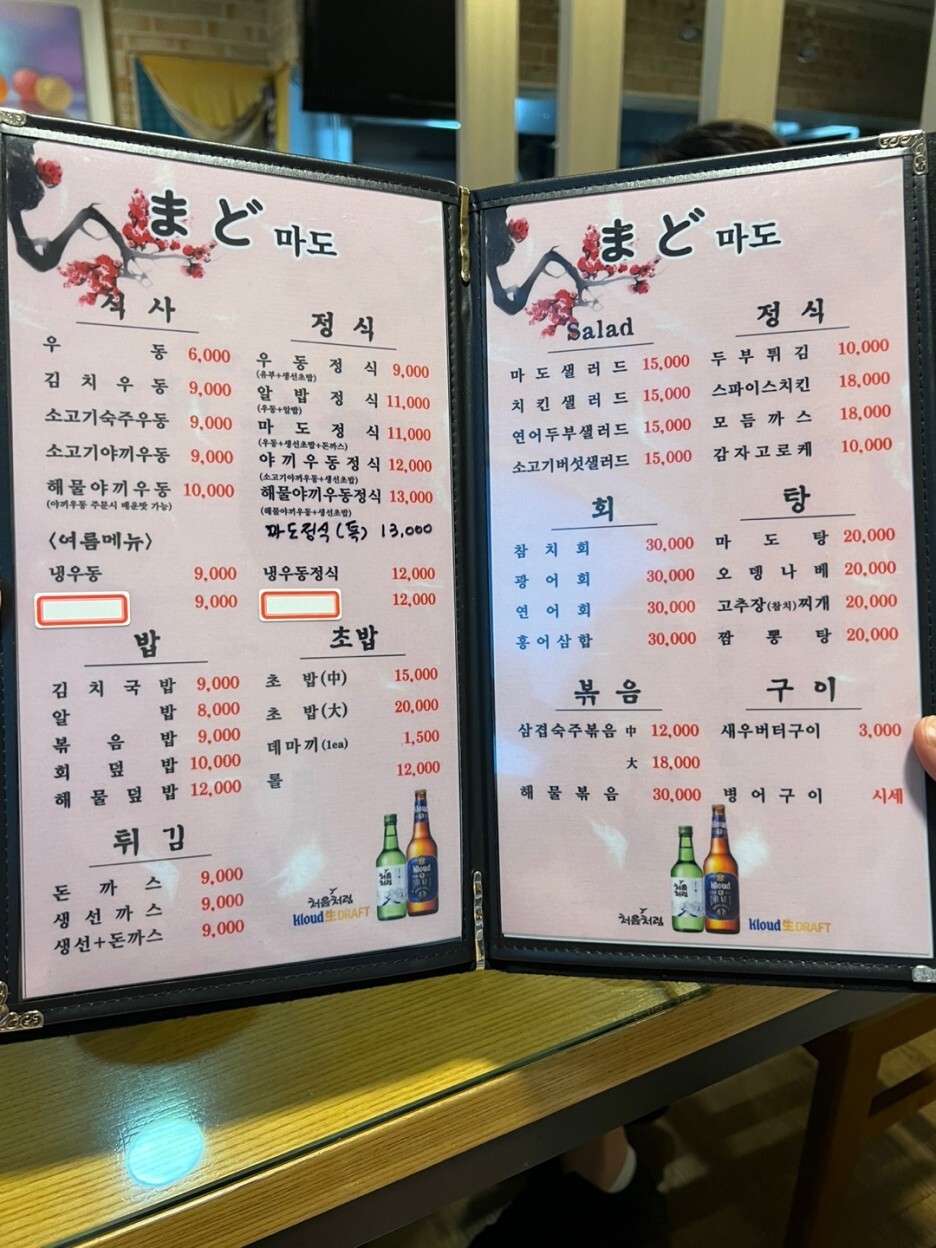 まど 마도
식 사
우 동 6,000
김 치 우 동 9,000
소고기숙주우동 9,000
소고기야끼우동 9,000
해물야끼우동 10,000
(야끼우동 주문시 매운맛 가능)
<여름메뉴>
냉우동 9,000
9,000
밥
김 치 국 밥 9,000
알 밥 8,000
볶 음 밥 9,000
회 덮 밥 10,000
해 물 덮 밥 12,000
튀 김
돈 까 스 9,000
생 선 까 스 9,000
생선+돈까스 9,000
정 식
우 동 정 식 9,000
(유부+생선초밥)
알 밥 정 식 11,000
(우동+알밥)
마 도 정 식 11,000
(우동+생선초밥+돈까스)
야 끼 우 동 정 식 12,000
(소고기야끼우동+생선초밥)
해물야끼우동정식 13,000
(해물야끼우동+생선초밥)
마도정식(특) 13,000
냉우동정식 12,000
12,000
초밥
초 밥(中) 15,000
초 밥(大) 20,000
데마끼(1ea) 1,500
롤 12,000
처음처럼
kloud生DRAFT
まど 마도
Salad
마 도 샐 러 드 15,000
치 킨 샐 러 드 15,000
연어두부샐러드 15,000
소고기버섯샐러드 15,000
회
참 치 회 30,000
광 어 회 30,000
연 어 회 30,000
홍어삼합 30,000
볶 음
삼겹숙주볶음 中 12,000
大 18,000
해 물 볶 음 30,000
정 식
두 부 튀 김 10,000
스파이스치킨 18,000
모 듬 까 스 18,000
감 자 고 로 케 10,000
탕
마 도 탕 20,000
오 뎅 나 베 20,000
고추장(참치)찌개 20,000
짬 뽕 탕 20,000
구 이
새우버터구이 3,000
병 어 구 이 시세
처음처럼
kloud生DRAFT